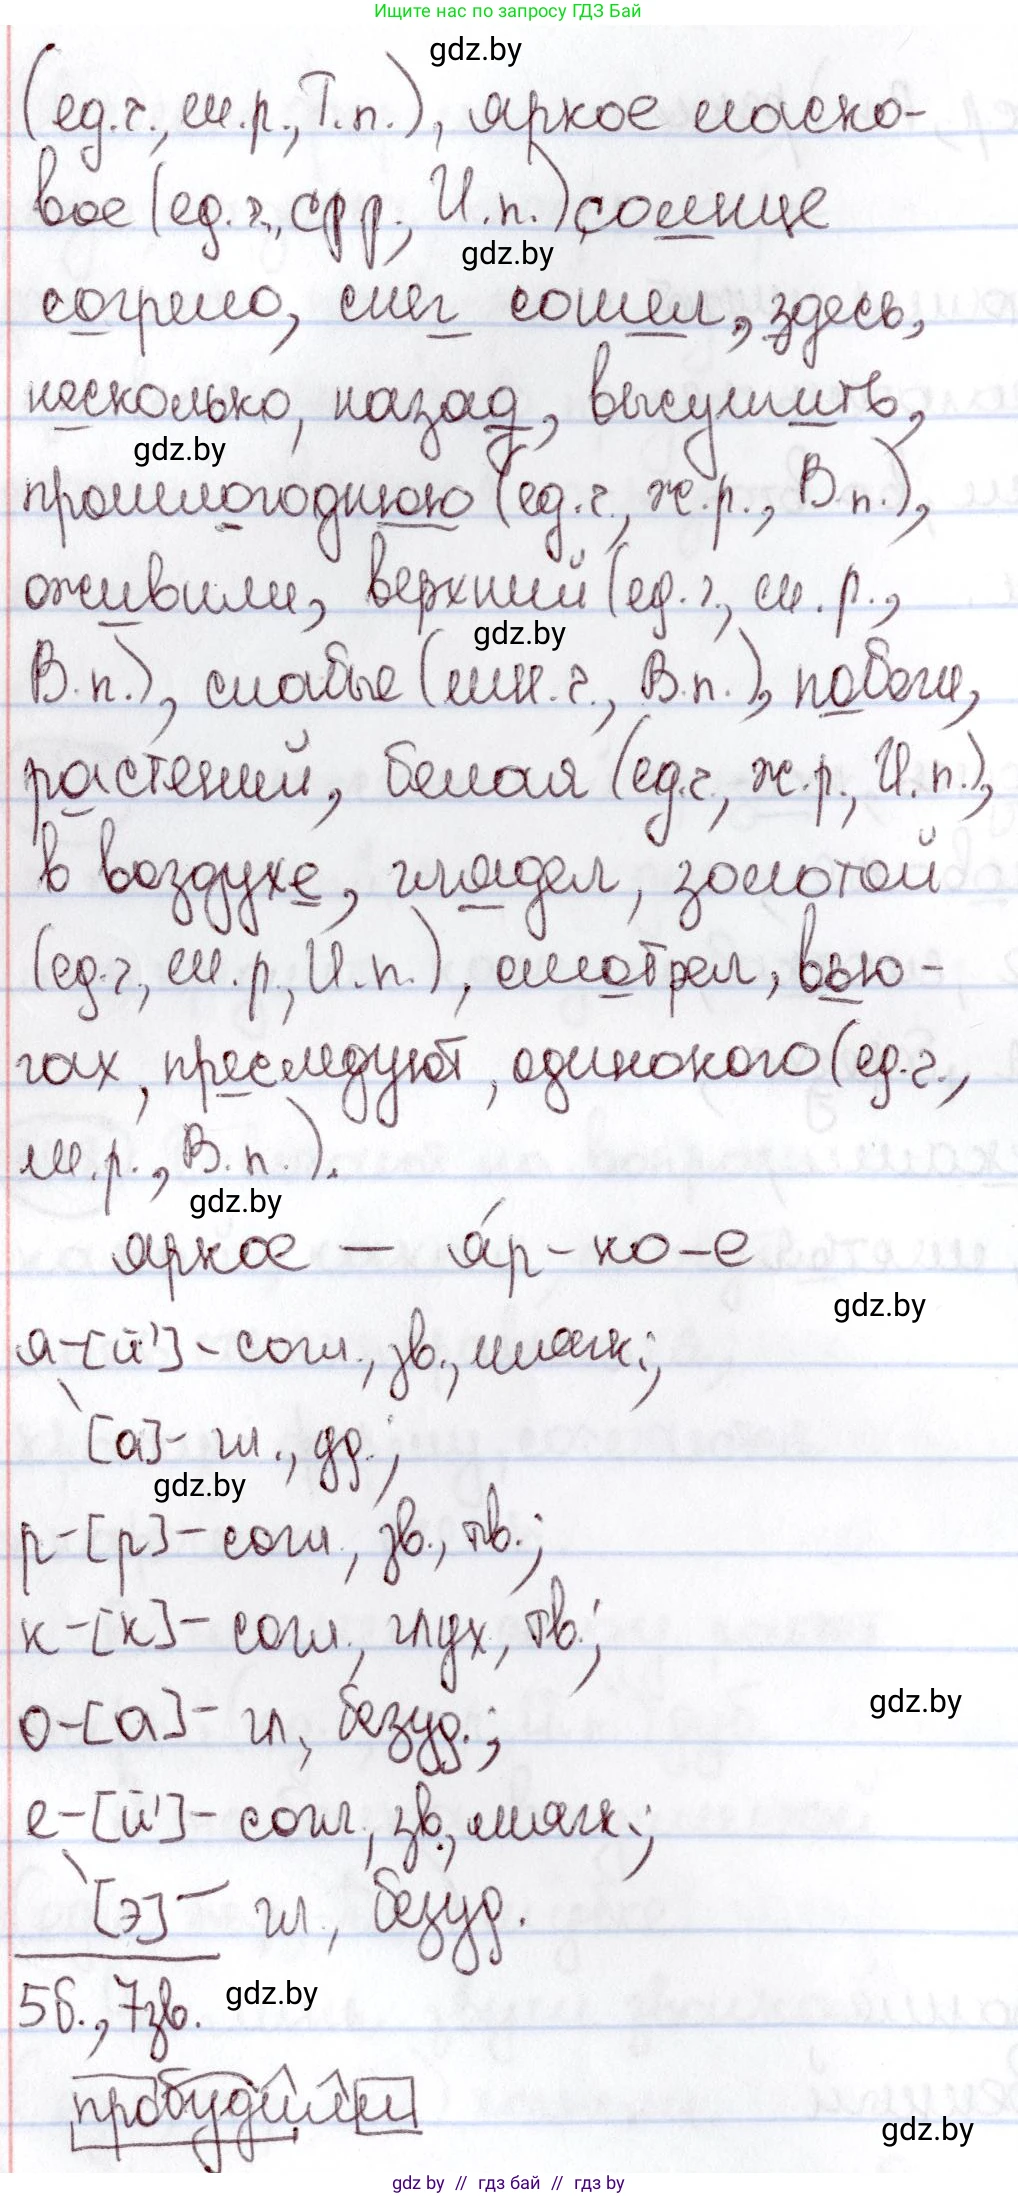 Ищите нас по запросу ГДЗ Бай
gdz.by
(ед.ч., м.р., Т.п.), яркое ласко-
вое (ед.ч., ср.р., И.п.) солнце
gdz.by
согрело, снег сошел, здесь,
несколько, назад, высушить,
gdz.by
прошлогоднюю (ед.ч., ж.р., В.п.),
оживили, верхний (ед.ч., м.р.,
gdz.by
В.п.), слабые (мн.ч., В.п.), побеги,
растений, белая (ед.ч., ж.р., И.п.),
в воздухе, глядел, золотой
(ед.ч., м.р., И.п.), смотрел, вью-
гах, преследуют, одинокого (ед.ч.,
м.р., В.п.).
gdz.by
яркое — я́р-ко-е
gdz.by
я-[й']-согл., зв., мягк.;
[а]-гл., уд.;
gdz.by
р-[р]-согл., зв., тв.;
к-[к]-согл., глух, тв.;
gdz.by
о-[а]-гл, безуд.;
е-[й']-согл, зв., мягк.;
[э]-гл., безуд.
5б., 7зв.
gdz.by
пробудили
gdz.by
gdz by // гдз бай // gdz by